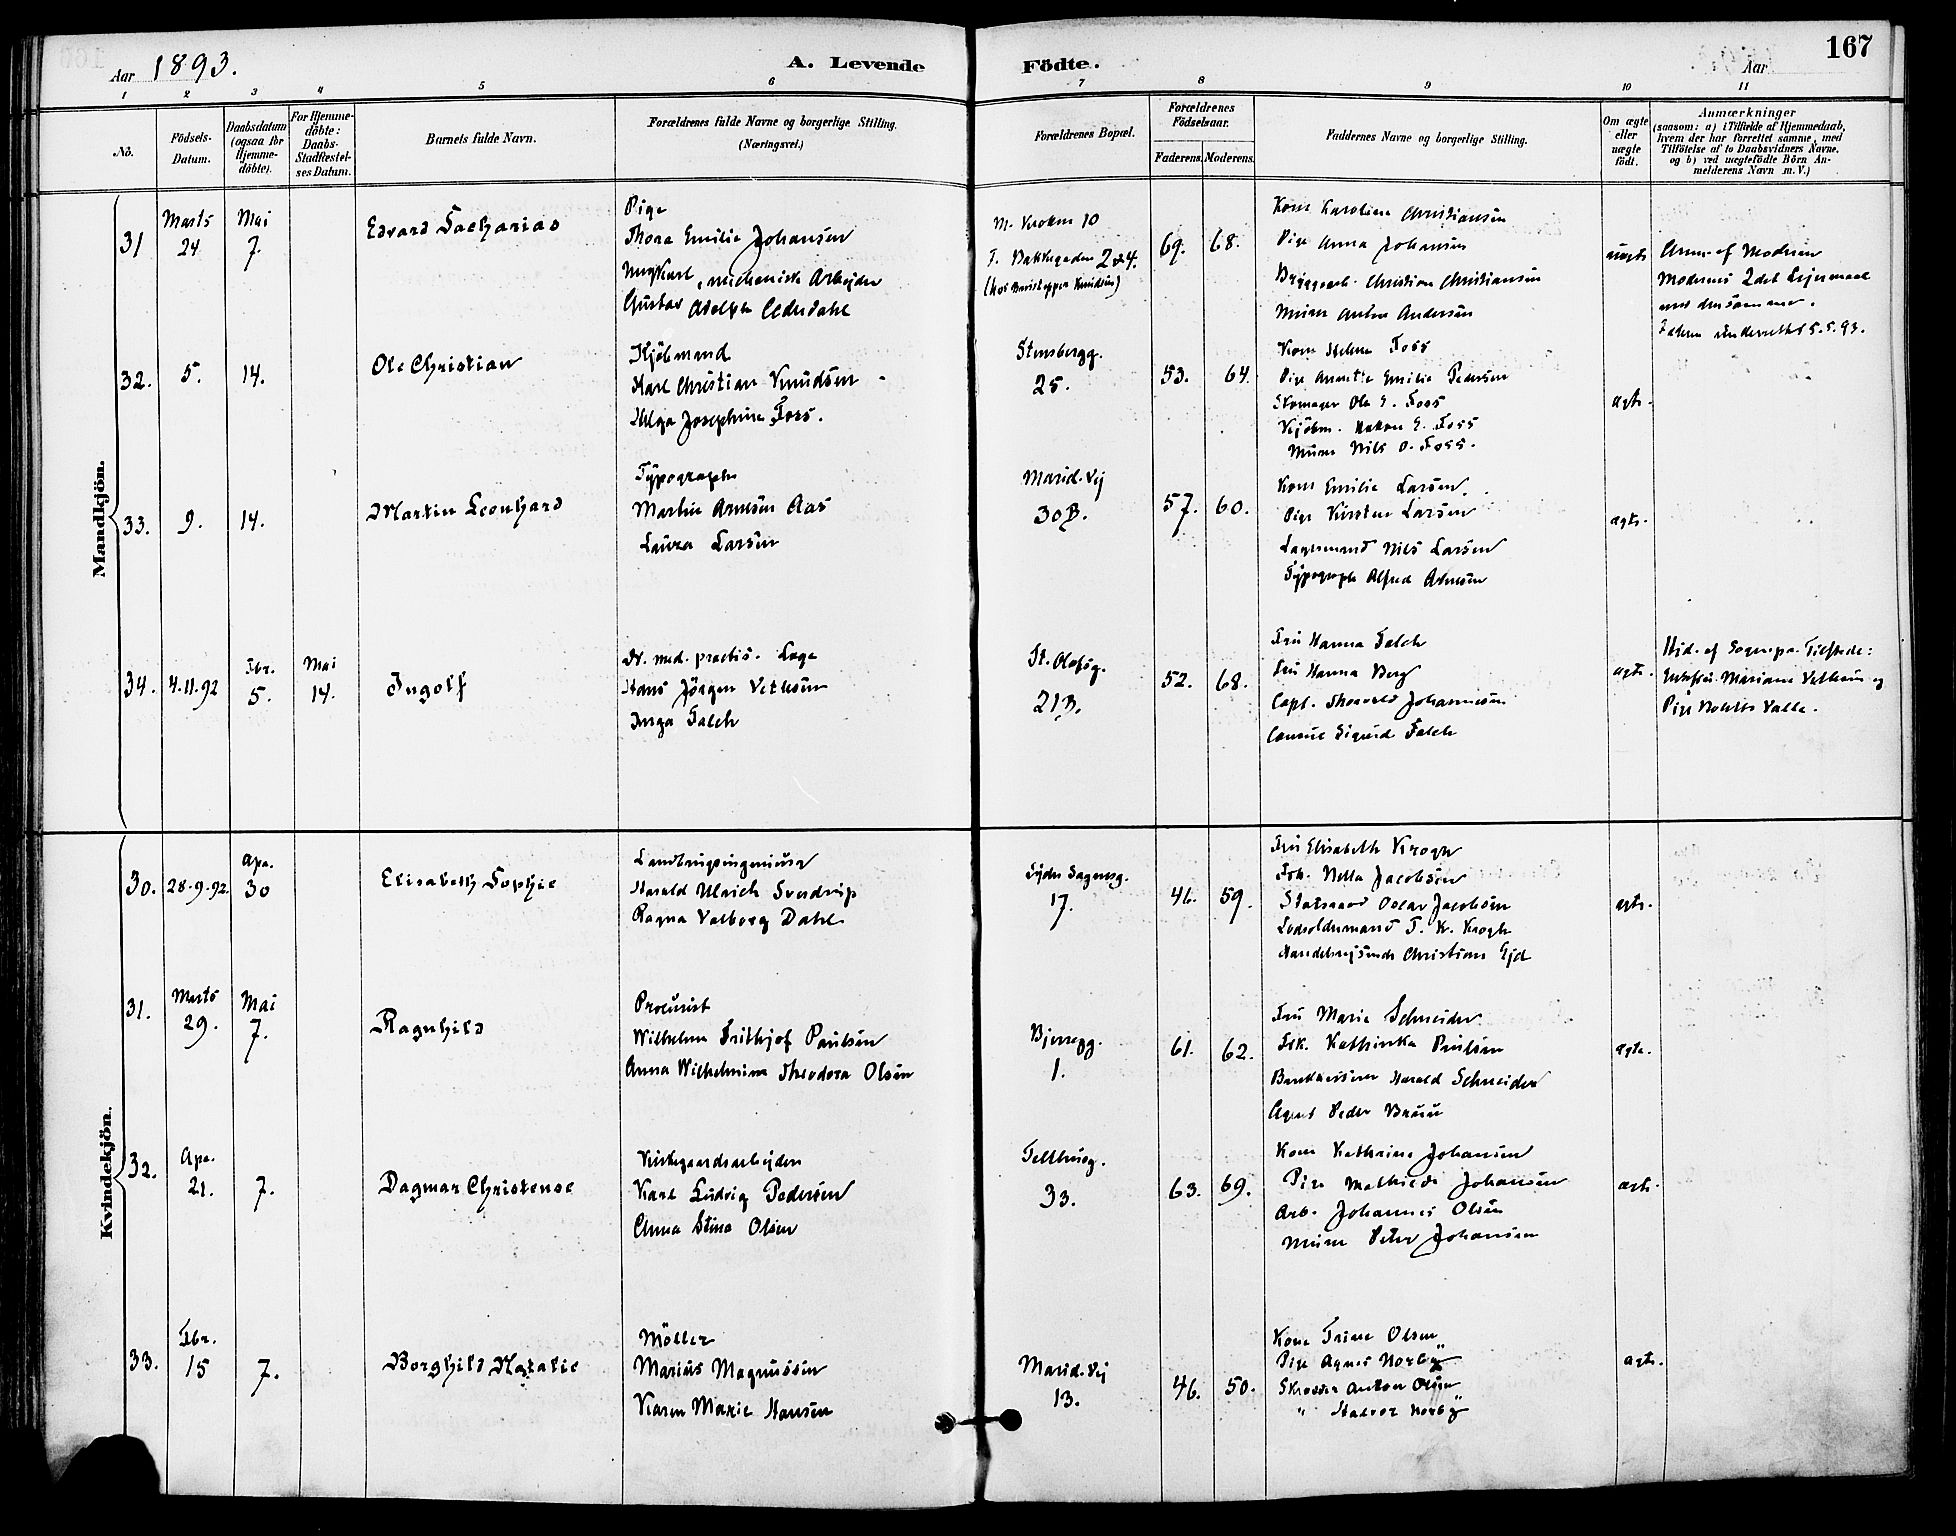 Aar 1893.
A. Levende Födte.
Aar
167
1 2 3 4 5 6 7 8 9 10 11
No.
Födsels-Datum.
Daabsdatum (ogsaa for Hjemme-döbte).
For Hjemme-döbte: Daabs-Stadfæstel-ses Datum.
Barnets fulde Navn.
Forældrenes fulde Navne og borgerlige Stilling.
(Næringsvei.)
Forældrenes Bopæl.
Forældrenes Födselsaar.
Faderens. Moderens.
Faddernes Navne og borgerlige Stilling.
Om ægte eller uægte födt.
Anmærkninger
(saasom: a) i Tilfælde af Hjemmedaab,
hvem der har forrettet samme, med
Tilföielse af to Daabsvidners Navne,
og b) ved uægtefödte Börn An-
melderens Navn m. V.)
Mandkjön.
31 Marts 24 Mai 7.
Edvard Zacharias
Pige
Thora Emilie Johansen
Ungkarl, mechanisk Arbeider
Gustav Adolph Cederdahl
M. Kroken 10
F. Bakkegaden 2 & 4.
69. 68.
Kone Karoline Christiansen
Pige Anna Johansen
Bryggearb. Christian Christiansen
Murer Anton Andersen
uægte
Anm. af Moderen
Moderens 2det Leiermaal
med den samme.
Faderen underrettet 5.5.93.
32. 5. 14.
Ole Christian
Kjöbmand
Karl Christian Knudsen
Helga Josephine Foss.
Stensbergg.
25.
53. 64.
Kone Helene Foss
Pige Annette Emilie Pedersen
Skomager Ole E. Foss
Kjöbm. Hakon E. Foss
Murer Nils O. Foss.
ægte.
33. 9. 14.
Martin Leonhard
Typograph
Martin Arnesen Aas
Laura Larsen
Marid. Vej
30B.
57. 60.
Kone Emilie Larsen.
Pige Kirsten Larsen
Lagermand Nils Larsen
Typograph Alfred Arnesen
ægte.
34. 4.11.92 Fbr. 5. Mai 14.
Ingolf
Dr. med. practis. Læge
Hans Jörgen Vetlesen
Inga Falch
St. Olafsg.
21B.
52. 68.
Fru Hanna Falch
Fru Hanna Berg
Capt. Thorvald Johannesen
Consul Sigurd Falch
ægte.
Hjd. af Sognepr. Tilstede:
Mariane Vetlesen og
Pige Valle.
Kvindekjön.
30. 28-9-92. Apr. 30
Elisabeth Sophie
Landbrugsingeniör
Harald Ulrich Sverdrup
Ragna Valborg Dahl
Tyder Sagensg.
17.
46. 59.
Fru Elisabeth Krogh
Frk. Nella Jacobsen
Statsraad Oscar Jacobsen
Lodsoldermand F. K. Krogh
Handelsreisende Christian Gjd
ægte.
31. Marts 29. Mai 7.
Ragnhild
Procurist
Wilhelm Frithjof Paulsen
Anna Wilhelmine Theodora Olsen
Bjerregg.
1.
61. 62.
Fru Marie Schneider
Frk. Kathinka Paulsen
Bankkasserer Harald Schneider
Agent Peder Bruun
ægte.
32. Apr. 21. 7.
Dagmar Christense
Kirkegaardsarbejder
Karl Ludvig Pedersen
Anna Stina Olsen
Telthusg.
33.
63. 69.
Kone Kathrine Johansen
Pige Mathilde Johansen
Arb. Johannes Olsen
Murer Peter Johansen
ægte.
33. Fbr. 15 7.
Borghild Natalie
Möller
Marius Magnussen
Karen Marie Hansen
Marid. Vej
13.
46. 50.
Kone Trine Olsen
Pige Agnes Norby
Skrædder Anton Olsen
" Halvor Norby
ægte.